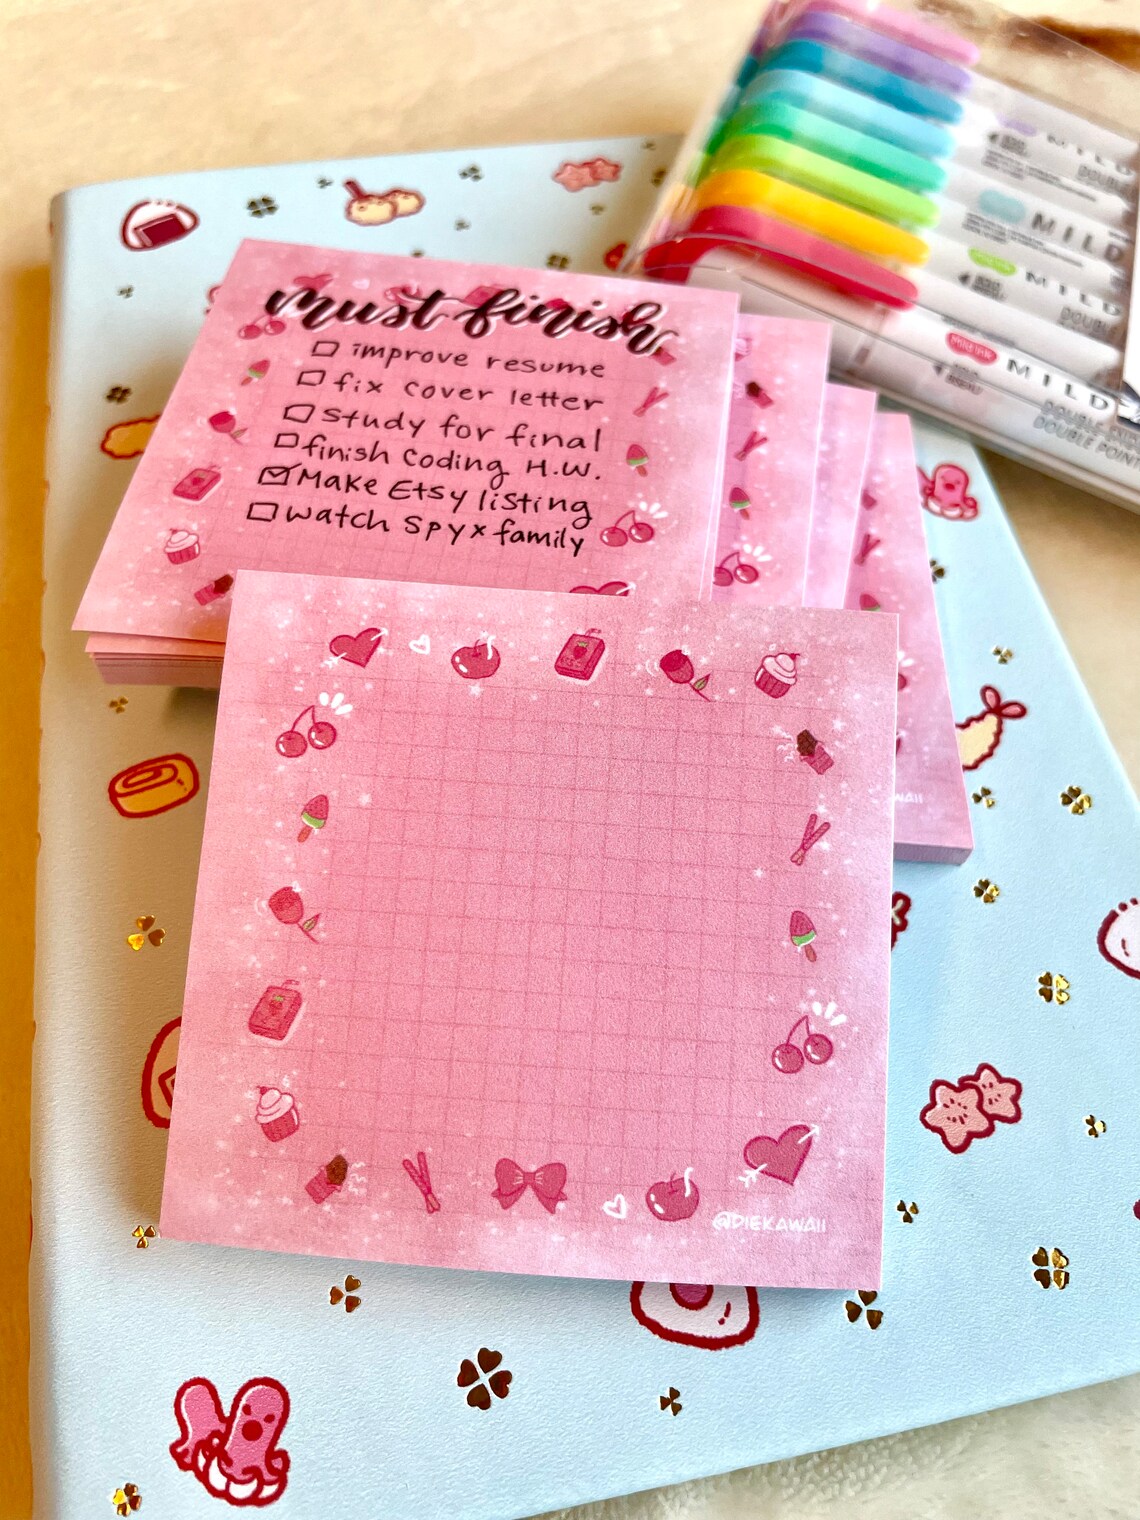 must finish
improve resume
fix cover letter
study for final
finish coding H.W.
Make Etsy listing
watch spy x family
@DIEKAWAII
WAII
MILD
MILD
MILD
MILD
DOUBLE
DOUBLE
DOUBLE POINT